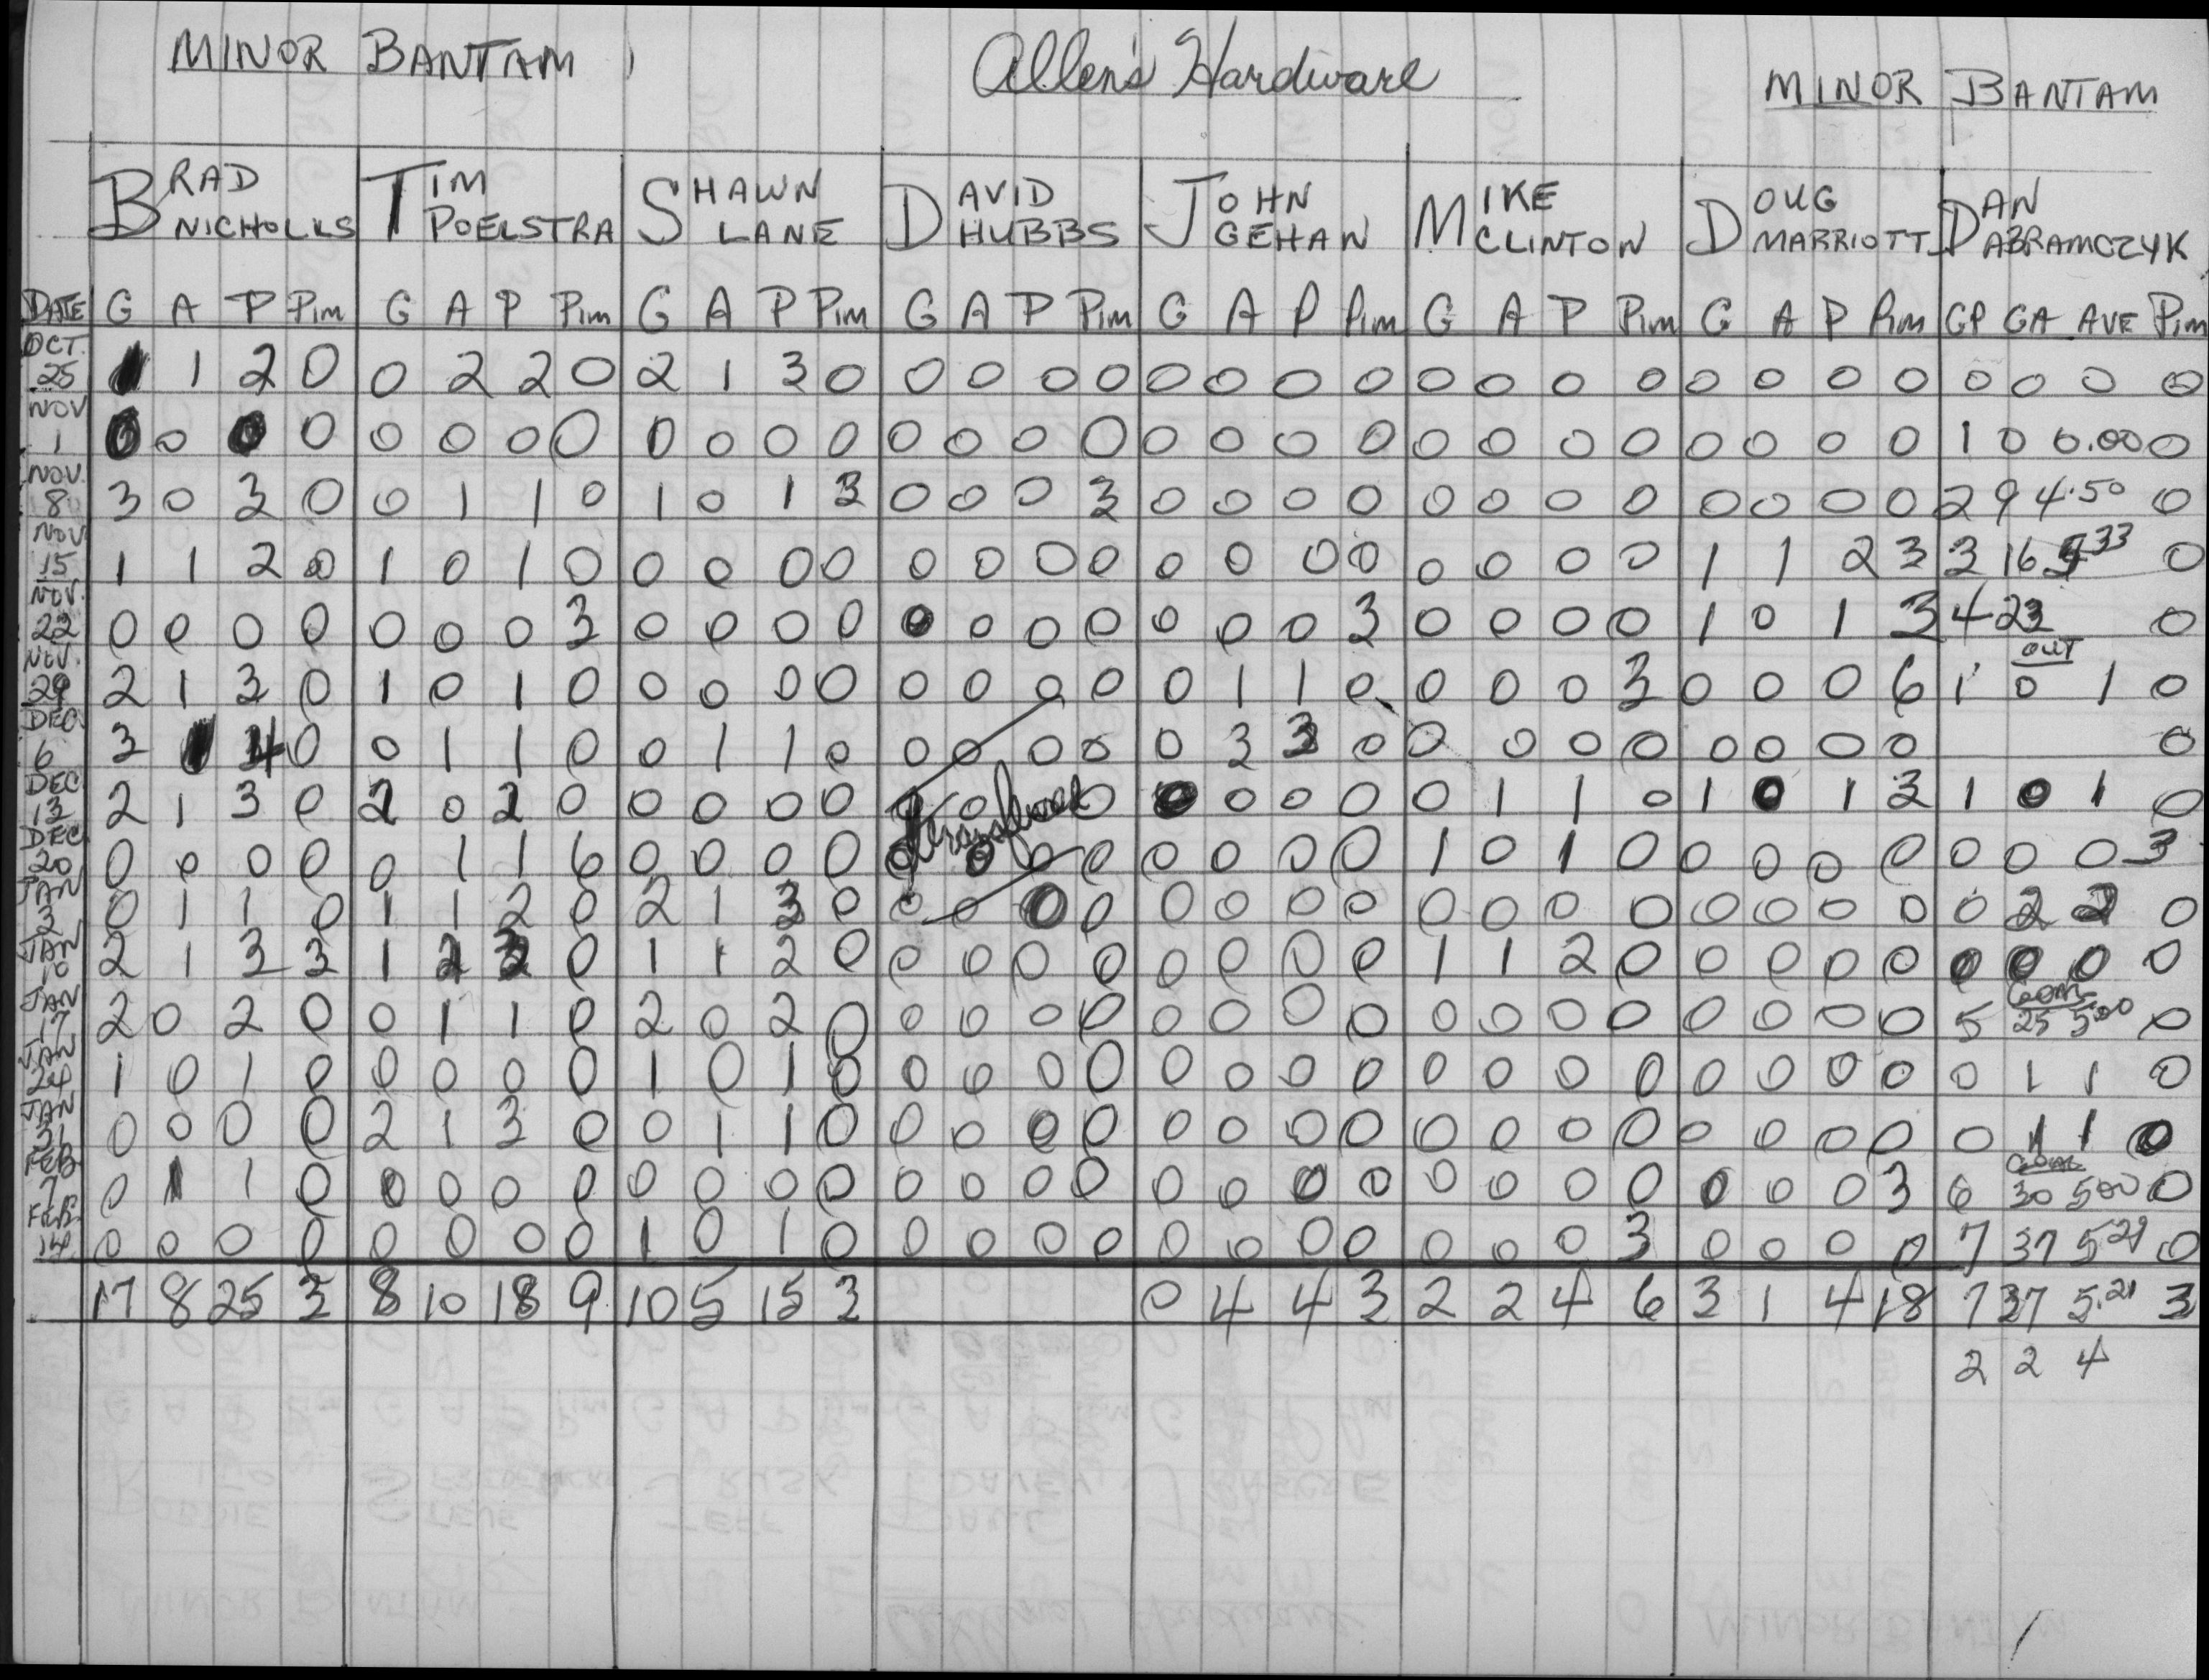 MINOR BANTAM Allen's Hardware MINOR BANTAM
BRAD NICHOLLS TIM POELSTRA SHAWN LANE DAVID HUBBS JOHN GEHAN MIKE CLINTON DOUG MARRIOTT DAN ABRAMCZYK
DATE G A P Pim G A P Pim G A P Pim G A P Pim G A P Pim G A P Pim G A P Pim GP GA AVE Pim
OCT. 25 1 1 2 0 0 2 2 0 2 1 3 0 0 0 0 0 0 0 0 0 0 0 0 0 0 0 0 0 0 0 0 0
NOV 1 0 0 0 0 0 0 0 0 0 0 0 0 0 0 0 0 0 0 0 0 0 0 0 0 0 0 0 0 1 0 0.00 0
NOV. 8 3 0 3 0 0 1 1 0 1 0 1 3 0 0 0 3 0 0 0 0 0 0 0 0 0 0 0 0 2 9 4.50 0
NOV 15 1 1 2 0 1 0 1 0 0 0 0 0 0 0 0 0 0 0 0 0 0 0 0 0 1 1 2 3 3 16 5 33 0
NOV. 22 0 0 0 0 0 0 0 3 0 0 0 0 0 0 0 0 0 0 0 3 0 0 0 0 1 0 1 3 4 23 0
NOV. 29 2 1 3 0 1 0 1 0 0 0 0 0 0 0 0 0 0 1 1 0 0 0 0 3 0 0 0 6 out 1 0 1 0
DEC. 6 3 1 4 0 0 1 1 0 0 1 1 0 0 0 0 0 0 3 3 0 0 0 0 0 0 0 0 0 0
DEC 13 2 1 3 0 2 0 2 0 0 0 0 0 0 0 0 0 0 0 0 0 1 1 0 1 0 1 3 1 0 1 0
DEC 20 0 0 0 0 0 1 1 6 0 0 0 0 0 0 0 0 0 0 0 0 1 0 1 0 0 0 0 0 0 0 0 3
JAN 3 0 1 1 0 1 1 2 0 2 1 3 0 0 0 0 0 0 0 0 0 0 0 0 0 0 0 0 0 0 2 2 0
JAN 10 2 1 3 3 1 2 3 0 1 1 2 0 0 0 0 0 0 0 0 0 1 1 2 0 0 0 0 0 0 0 0 0
JAN 17 2 0 2 0 0 1 1 0 2 0 2 0 0 0 0 0 0 0 0 0 0 0 0 0 0 0 0 0 Goal 5 25 5 00 0
JAN 24 1 0 1 0 0 0 0 0 1 0 1 0 0 0 0 0 0 0 0 0 0 0 0 0 0 0 0 0 0 1 1 0
JAN 31 0 0 0 0 2 1 3 0 0 1 1 0 0 0 0 0 0 0 0 0 0 0 0 0 0 0 0 0 0 1 1 0
FEB 7 0 1 1 0 0 0 0 0 0 0 0 0 0 0 0 0 0 0 0 0 0 0 0 0 0 0 0 3 Goal 6 30 5 00 0
FEB. 14 0 0 0 0 0 0 0 0 1 0 1 0 0 0 0 0 0 0 0 0 0 0 0 3 0 0 0 0 7 37 5 29 0
17 8 25 3 8 10 18 9 10 5 15 3 0 4 4 3 2 2 4 6 3 1 4 18 7 37 5.21 3
2 2 4